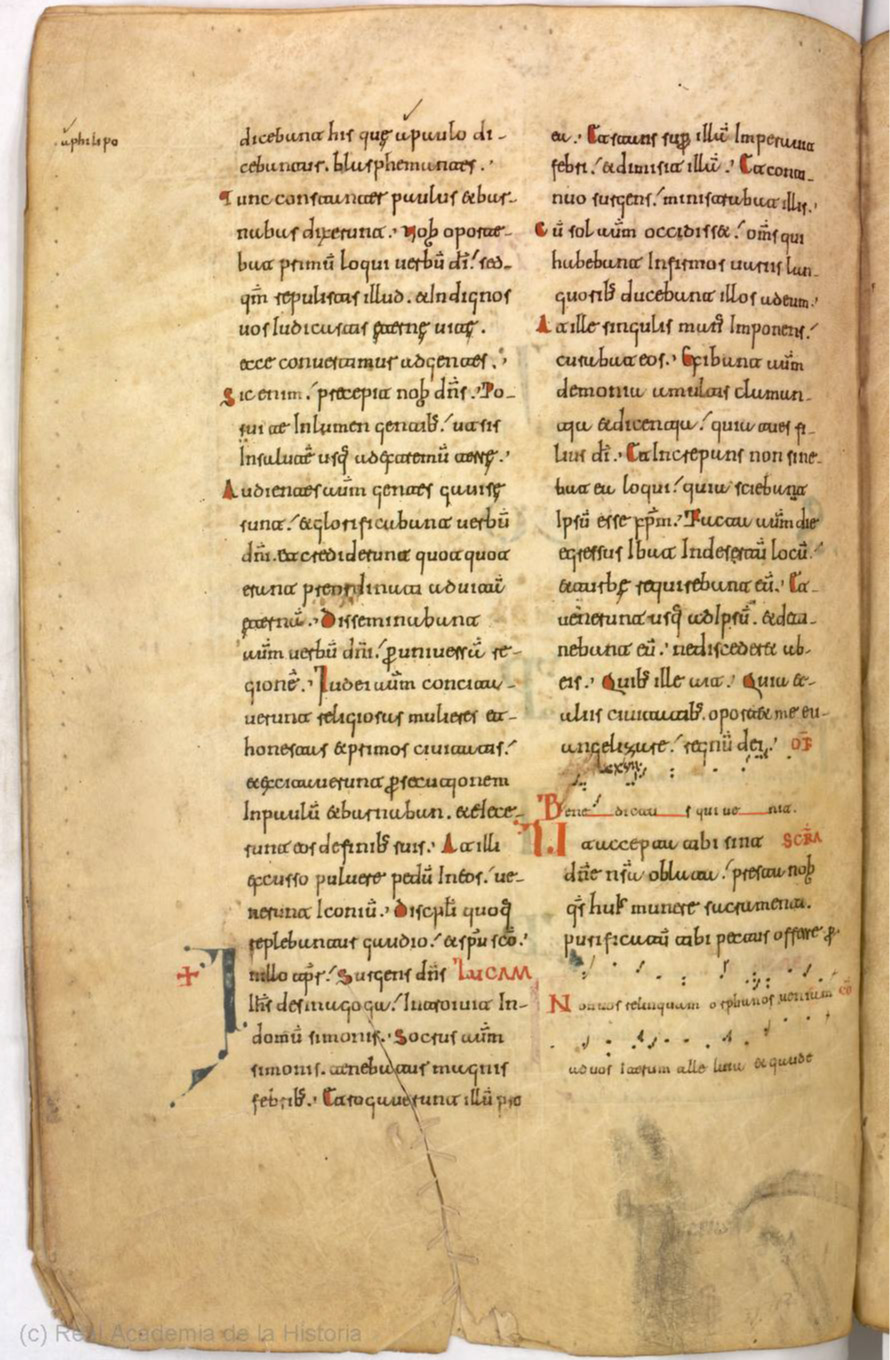 aphilipo
dicebant his quę apaulo di-
cebantur. blasphemantes.
Tunc constanter paulus & bar-
nabas dixerunt. Uob oporte-
bat primū loqui uerbū dī. sed-
qm̄ repulistis illud. & Indignos
uos Iudicastis ęternę uitę.
ecce conuertimur adgentes.
Sic enim precepit nob dn̄s. Po-
sui te Inlumen gentib. ut sis
Insalutē usq adextremū terrę.
Audientes autm̄ gentes gauisę
sunt. & glorificabant uerbū
dn̄i. et crediderunt quotquot
erant aduitā
ęternā. Disseminabant
autm̄ uerbū dn̄i. ꝑ uniuersā re-
gionē. Iudei autm̄ concitau-
uerunt religiosas mulieres et-
honestas & primos ciuitatis.
& excitauerunt ꝑsecutionem
Inpaulū & barnaban. & eiece-
runt eos definib suis. At illi
excusso puluere pedū Ineos. ue-
nerunt Iconiū. Discpli quoq
replebantur gaudio. & spū scō.
Inillo tpr. Surgens dn̄s LUCAM
Ihs desinagoga. Introiuit In-
domū simonis. Socrus autm̄
simonis. tenebatur magnis
febrib. Et rogauerunt illū pro
ea. Et stans supͣ illā Imperauit
febri. & dimisit illā. Et conti-
nuo surgens. ministrabat illis.
Cū sol autm̄ occidisset. oms qui
habebant Infirmos uariis lan-
guorib ducebant illos adeum.
At ille singulis man Imponens.
curabat eos. Exibant autm̄
demonia amultis claman-
tia & dicentia. quia tu es fi-
lius dī. Et Increpans non sine-
bat ea loqui. quia sciebant
Ipsū esse xp̄m. Facta autm̄ die
egressus Ibat Indesertū locū.
& turbę requirebant eū. Et-
uenerunt usq adIpsū. & deti-
nebant eū. nediscederet ab-
eis. Quib ille ait. Quia &-
aliis ciuitatib. oportet me eu-
angelizare. regnū dei. OF
Bene dictus qui ue nit.
Ut accepta tibi sint SCRA
dn̄e nrā oblata. presta nob
q̄s huis munere sacramenti.
purificatū tibi pectus offerre ꝑ
Non uos relinquam orphanos ueniam co
aduos Iterum alle luia & gaude